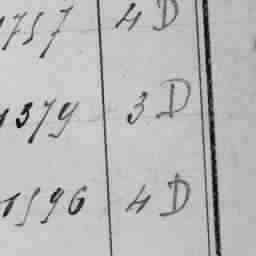 1757 4 D
1379 3 D
1596 4 D